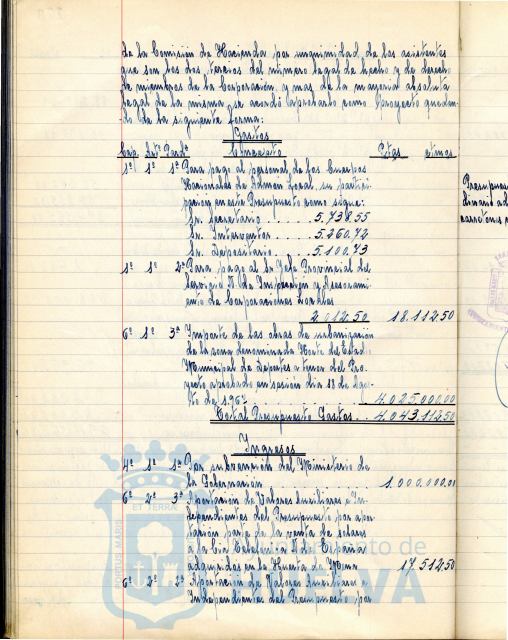 de la Comisión de Hacienda, por unanimidad de los asistentes
que son los dos tercios del número legal de hecho y de derecho
de miembros de la Corporación, y mas de la mayoria absoluta
legal de la misma se acordó aprobarlo como Proyecto quedan-
do de la siguiente forma:
Gastos
Cap. Artº Partª Concepto Ptas ctmos
1º 1º 1ª Para pago al personal de los Cuerpos
Nacionales de Admon Local, su partici-
pación en este Presupuesto como sigue:
Sr. Secretario . . . . 5.738.55
Sr. Interventor . . . . 5.260.72
Sr. Depositario . . . . 5.100.73
1º 1º 2ª Para pago al la Jefe Provincial del
Servicio N. de Inspección y Asesorami-
ento de Corporaciones Locales
2.012.50 18.112.50
6º 1º 3ª Importe de las obras de urbanización
de la zona denominada Norte del Estadio
Municipal de Deportes a tenor del Pro-
yecto aprobado en sesión dia 18 de Ago-
to de 1.962 4.025.000.00
Total Presupuesto Gastos . . 4.043.112.50
Ingresos
4º 1º 1ª Por subvención del Ministerio de
la Gobernación . . . . 1.000.000.00
6º 2º 3ª Aportación de Valores Auxiliares e In-
dependientes del Presupuesto por apor-
tación parte de la venta de solares
a la Cia Telefonica N. de España
adquiridos en la Huerta de Mena 17.512.50
6º 2º 2ª Aportación de Valores Auxiliares e
Independientes del Presupuesto, por
Presupues
dinario ad
carreteras
PORTUS MARIS
ET TERRAE
Ayuntamiento de
HUELVA